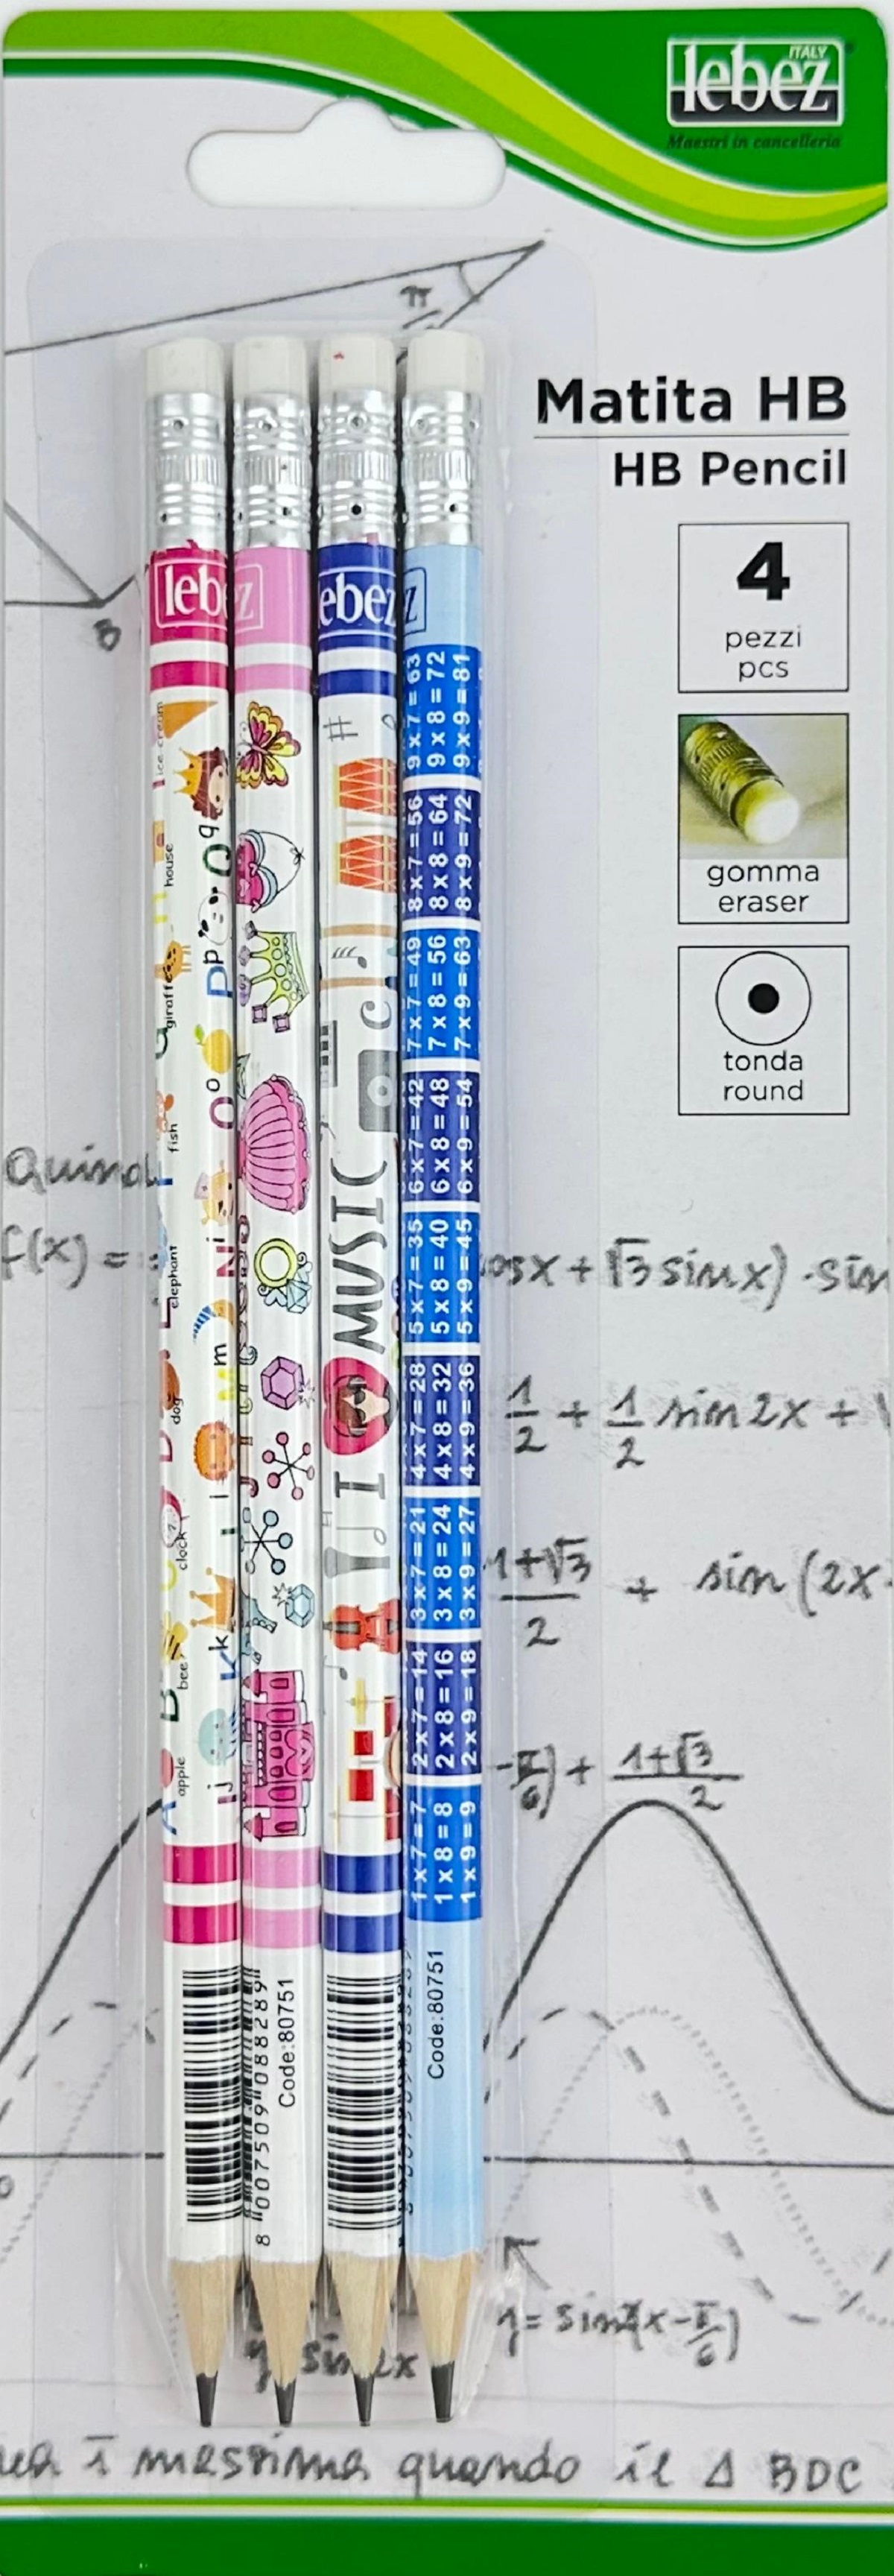 lebez
ITALY
Maestri in cancelleria
Matita HB
HB Pencil
4
pezzi
pcs
gomma
eraser
tonda
round
π
B
f(x) =
cosx + √3 sinx) · sin
1/2 + 1/2 sin 2x +
1+√3/2 + sin (2x -
-π/6) + 1+√3/2
y = sin 2x
massima quando il Δ BDC
ice-cream
house
giraffe
fish
elephant
dog
clock
bee
apple
q
Pp
Oo
N
m
l
Kk
j
Code:80751
8 007509 088289
I MUSIC
9 x 7 = 63
9 x 8 = 72
9 x 9 = 81
8 x 7 = 56
8 x 8 = 64
8 x 9 = 72
7 x 7 = 49
7 x 8 = 56
7 x 9 = 63
6 x 7 = 42
6 x 8 = 48
6 x 9 = 54
5 x 7 = 35
5 x 8 = 40
5 x 9 = 45
4 x 7 = 28
4 x 8 = 32
4 x 9 = 36
3 x 7 = 21
3 x 8 = 24
3 x 9 = 27
2 x 7 = 14
2 x 8 = 16
2 x 9 = 18
1 x 7 = 7
1 x 8 = 8
1 x 9 = 9
Code:80751